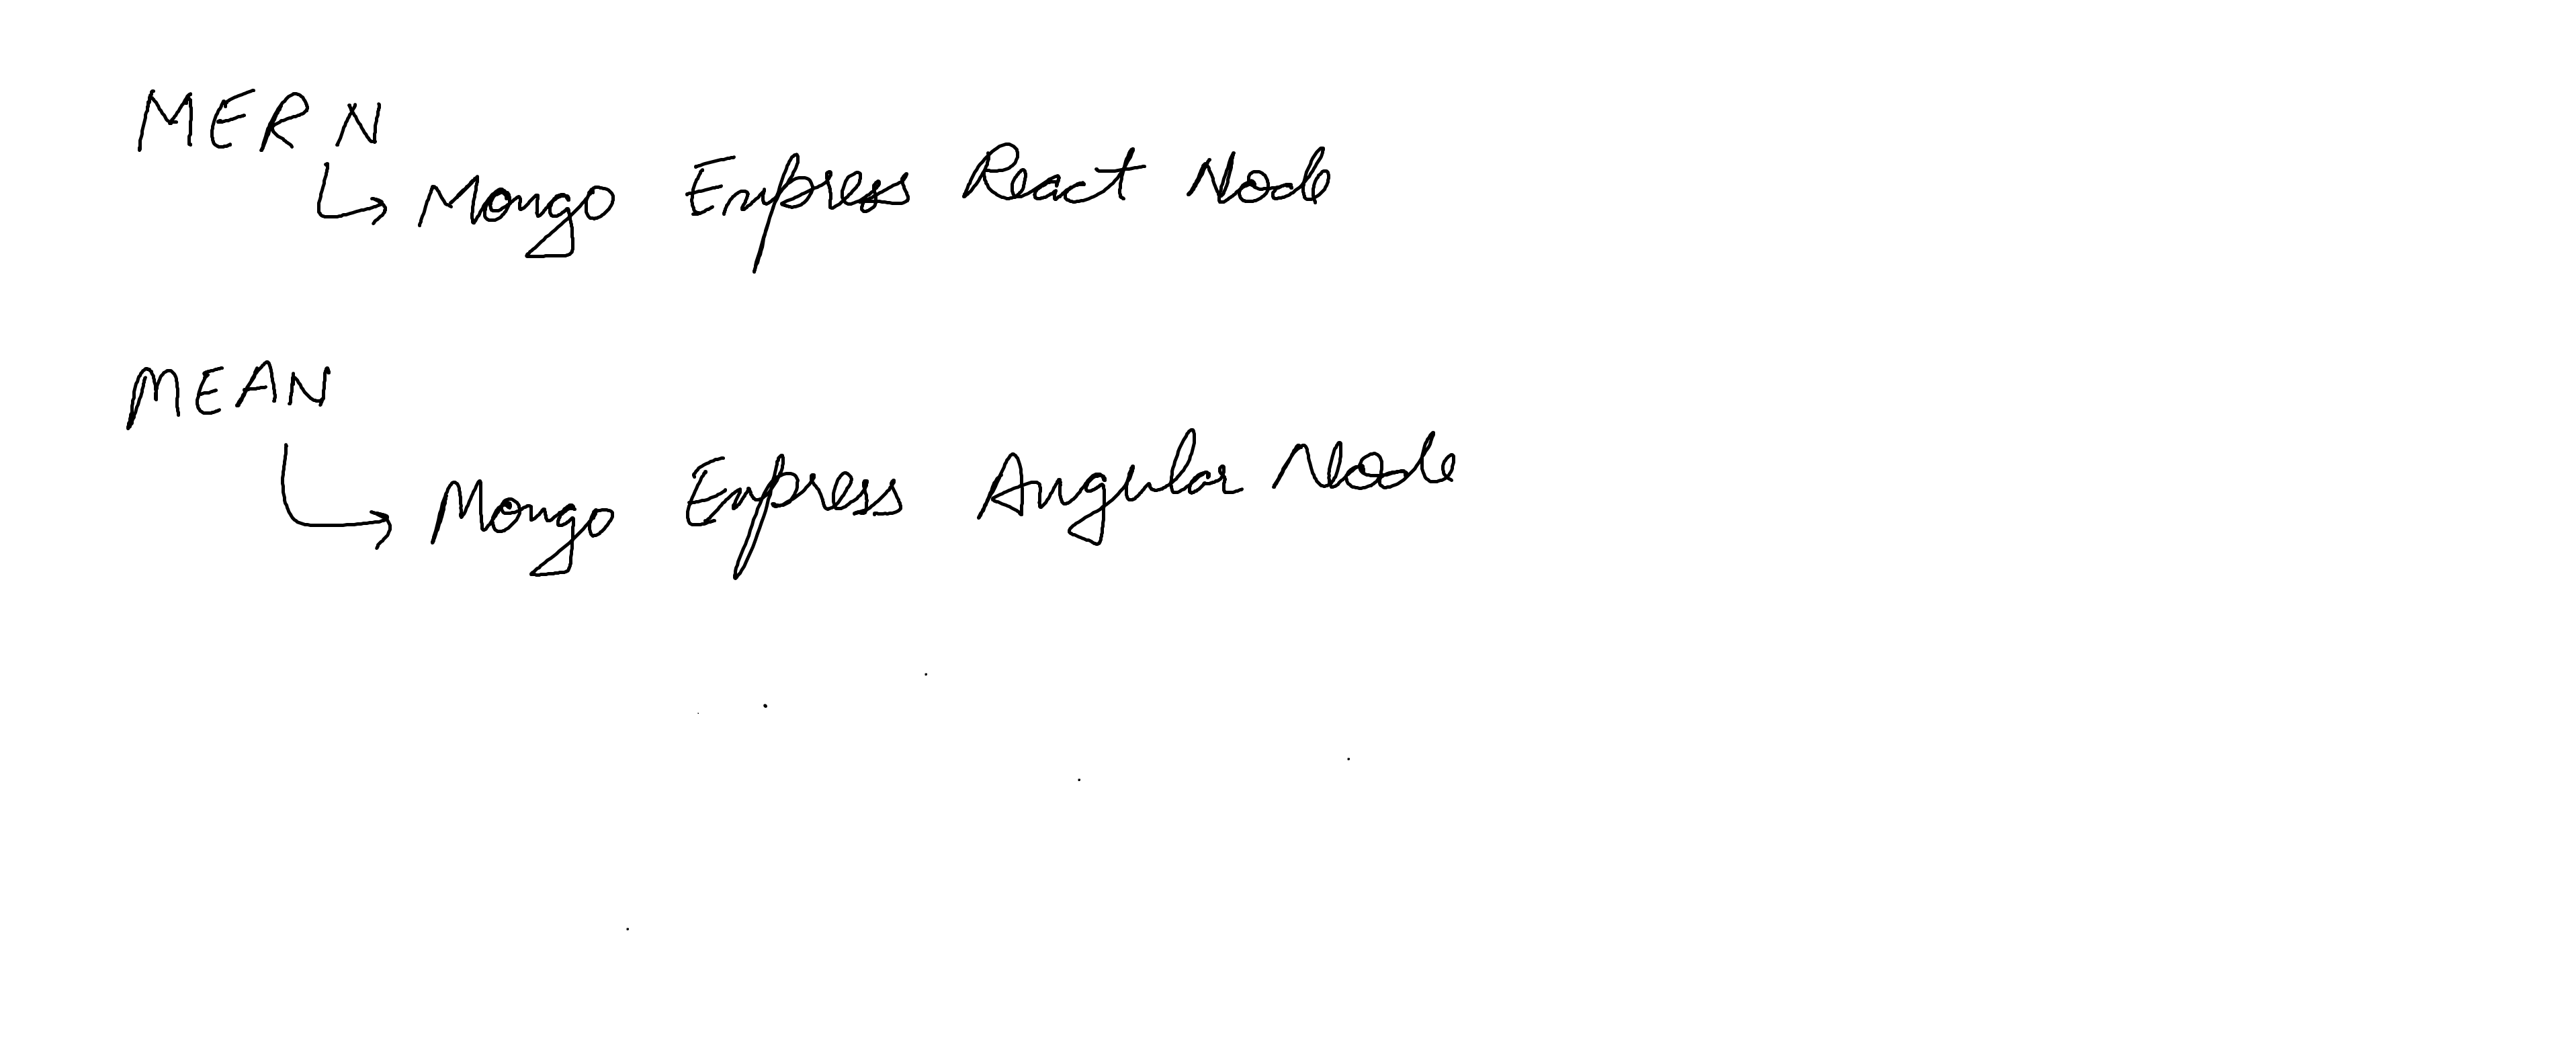 MERN
↳ Mongo Express React Node
MEAN
↳ Mongo Express Angular Node